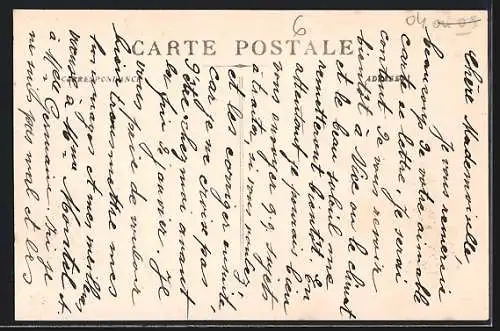 04 ou 05
6
CARTE POSTALE
CORRESPONDANCE
ADRESSE
Chère Mademoiselle,
Je vous remercie
beaucoup de votre aimable
carte et lettre, je serai
content de vous revoir
bientôt à Nice où le climat
et le beau soleil me
remettront bientôt. En
attendant je pourrai bien
vous envoyer q.q. sujets
à traiter, si vous voulez,
et les corriger ensuite
car je ne crois pas
être chez moi avant
la fin de janvier. Je
vous prie de vouloir
bien transmettre mes
hommages et mes meilleurs
vœux à Mme Montel et
à Melle Germaine. Ici je
ne suis pas mal et les